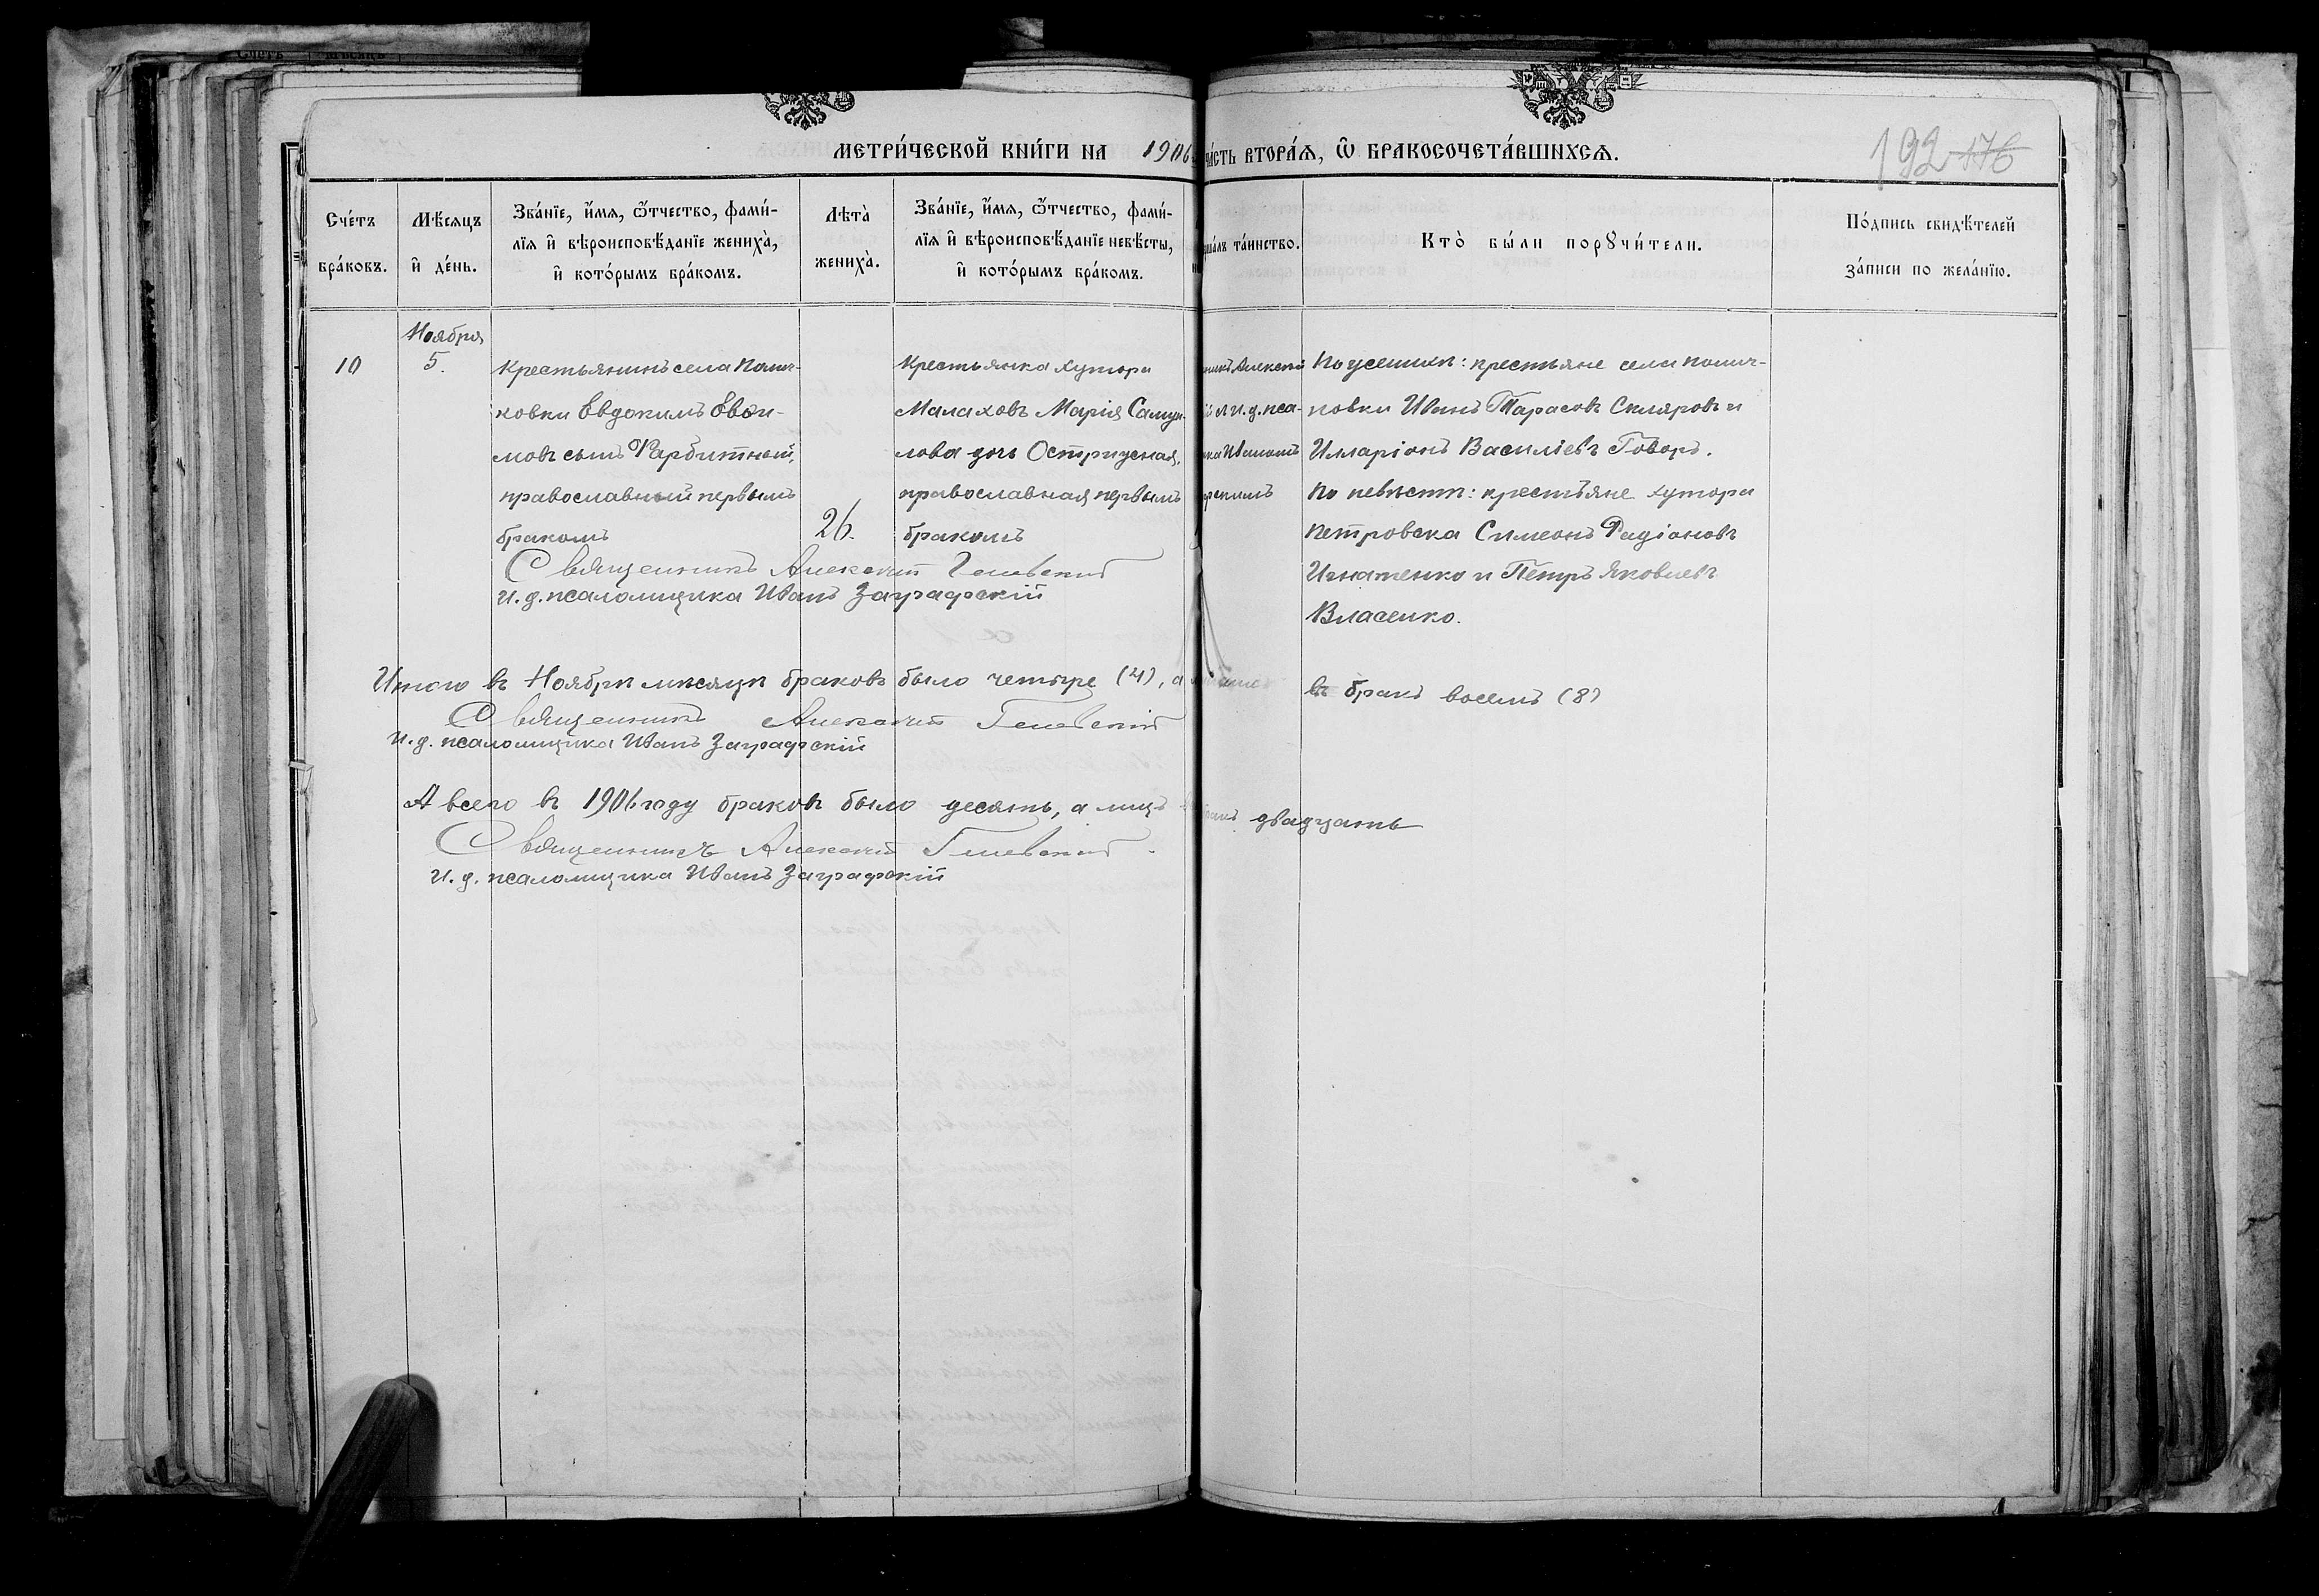 МЕТРИ́ЧЕСКОЙ КНИ́ГИ НА 1906
ЧА́СТЬ ВТОРА́Я, Ѡ БРАКОСОЧЕТА́ВШИХСЯ.
192 176
Сче́тъ бра́ковъ.
Мѣ́сяцъ и де́нь.
Зва́нїе, и́мя, ѻ҆́тчество, фами́-
лїя и вѣроисповѣ́данїе жениха̀,
и кото́рымъ бра́комъ.
Лѣта̀ жениха̀.
Зва́нїе, и́мя, ѻ҆́тчество, фами́-
лїя и вѣроисповѣ́данїе невѣ́сты,
и кото́рымъ бра́комъ.
та́инство.
Кто̀ бы́ли порꙋчи́тели.
По́дпись свидѣ́телей
за́писи по жела́нїю.
10
Ноября
5.
Крестьянинъ села
ковки Евдокимъ
мовъ сынъ Фарбитный,
православный первымъ
бракомъ
26.
Крестьянка хутора
Малаховъ Марія Самуи-
лова дочь
православная первымъ
бракомъ
Алексѣй
и и. д. пса-
Иваномъ
По женихѣ: крестьяне села
Иванъ Тарасовъ Скляровъ и
Илларіонъ Василіевъ Говоръ.
По невѣстѣ: крестьяне хутора
Петровска Симеонъ Радіоновъ
Игнатенко и Петръ Яковлевъ
Власенко.
Священникъ Алексѣй
и. д. псаломщика Иванъ Заградскій
Итого въ Ноябрѣ мѣсяцѣ браковъ было четыре (4), а въ бракѣ восемь (8)
Священникъ Алексѣй
и. д. псаломщика Иванъ Заградскій
А всего въ 1906 году браковъ было десять, а лицъ двадцать
Священникъ Алексѣй
и. д. псаломщика Иванъ Заградскій